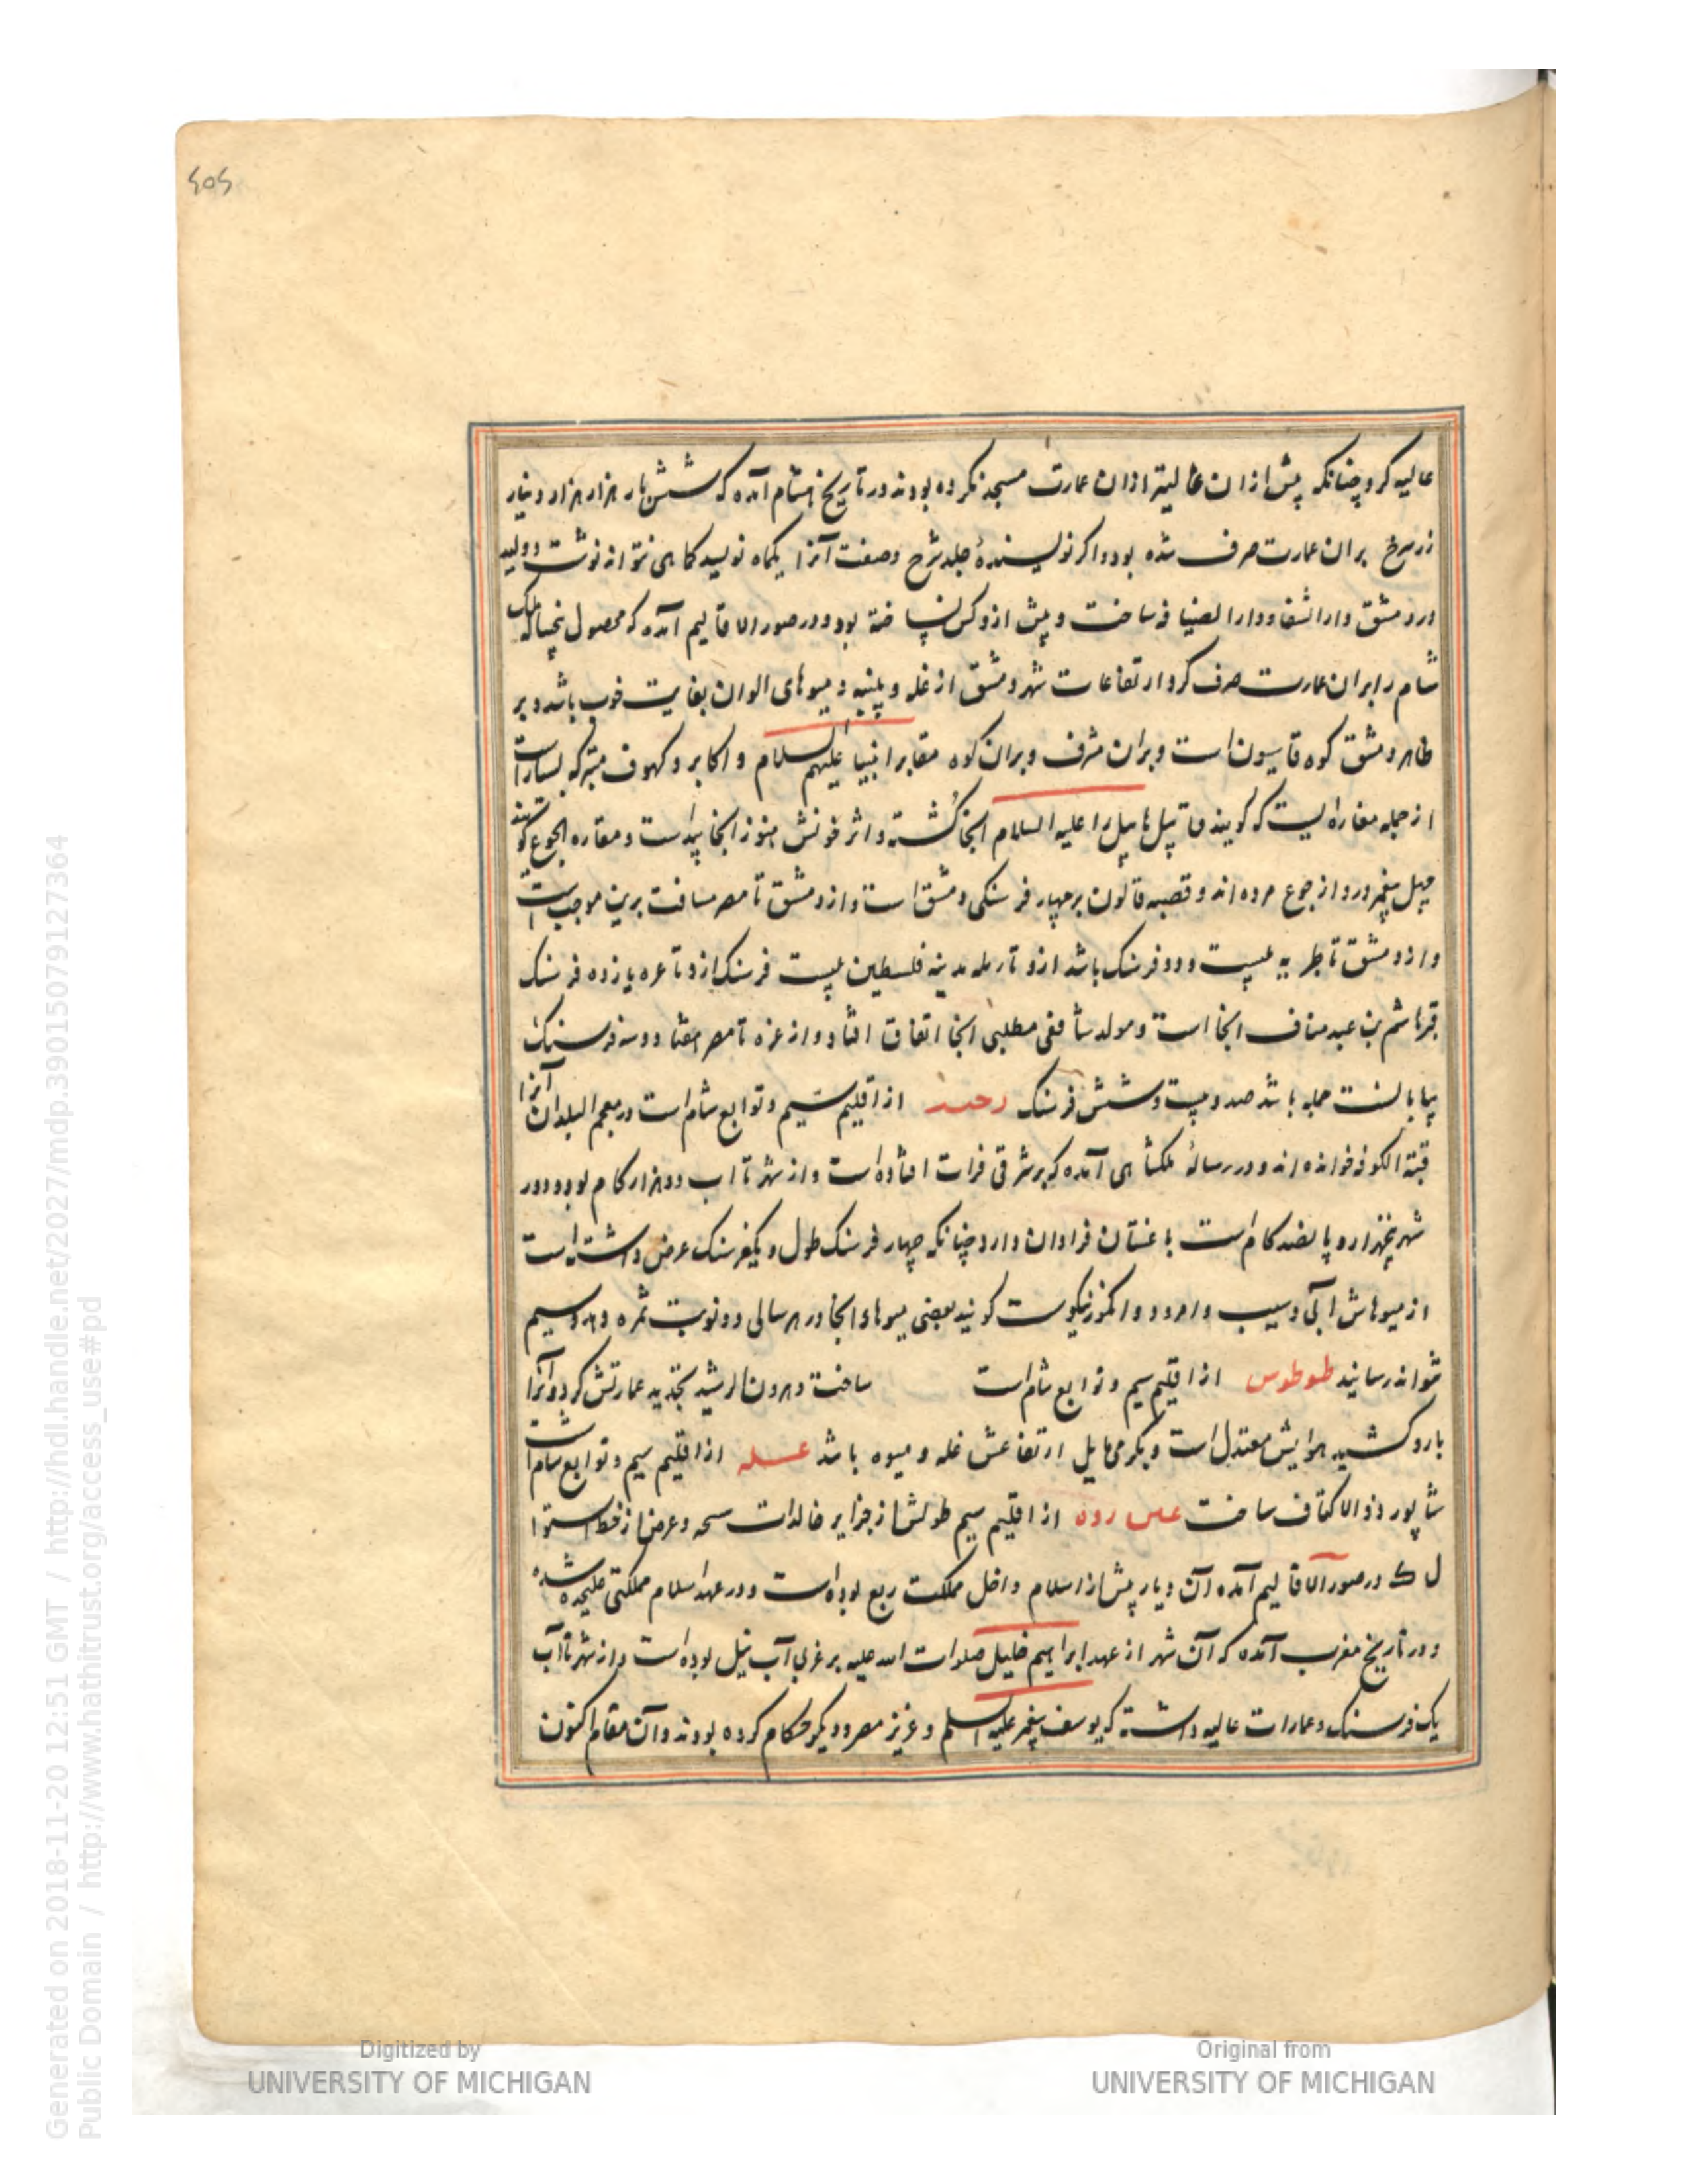 عالیه کرد چنانکه پیش ازان عالیتر ازان عمارت مسجد نکرده بودند در تاریخ شام آمده که شش بار هزار هزار دینار
زر سرخ بران عمارت صرف شده بود و اکر نویسندۀ جلد شرح و صفت آنرا یکماه نویسد کماهی نتواند نوشت و ولید
در دمشق دارالشفا و دارالضیافه ساخت و پیش ازو کس نساخته بود و در صور الاقالیم آمده که محصول پنجساله ملک
شام را بران عمارت صرف کرد ارتفاعات شهر دمشق از غله و پنبه و میوهای الوان بغایت خوب باشد و بر
ظاهر دمشق کوه قاسیون است و بران مشرف و بران کوه مقابر انبیا علیهم السلام و اکابر و کهوف متبرکه بسیار است
از جمله مغاره ایست که کویند قابیل هابیل را علیه السلام آنجا کشته و اثر خونش هنوز آنجا پیداست و مغاره الجوع کویند
چهل پیغمبر درو از جوع مرده اند و قصبه قالون بر چهار فرسنکی دمشق است و از دمشق تا مصر مسافت برین موجب است
و از دمشق تا طبریه بیست و دو فرسنک باشد ازو تا رمله مدینه فلسطین بیست فرسنک ازو تا غزه یازده فرسنک
قبر هاشم بن عبد مناف آنجا است و مولد شافعی مطلبی آنجا اتفاق افتاد و از غزه تا مصر هفتاد و سه فرسنک
بیابانست جمله باشد صد و بیست و شش فرسنک رحبه از اقلیم سیم و توابع شام است در معجم البلدان آنرا
قبة الکوفه خوانده اند و در رسالۀ ملکشاهی آمده که بر شرقی فرات افتاده است و از شهر تا آب دو هزار کام بود و دور
شهر پنجهزار و پانصد کام است باغستان فراوان دارد چنانکه چهار فرسنک طول و یکفرسنک عرض داشته است
از میوهاش آبی و سیب و امرود و انکور نیکوست کویند بعضی میوهای آنجا در هر سالی دو نوبت ثمره دهد و سیم
نتواند رسانید طوطوس از اقلیم سیم و توابع شام است ساخت و هرون الرشید تجدید عمارتش کرد و آنرا
بارو کشید هوایش معتدل است و بکرمی مایل ارتفاعش غله و میوه باشد عسله از اقلیم سیم و توابع شام است
شاپور ذو الاکتاف ساخت عین روه از اقلیم سیم طولش از جزایر خالدات سحه و عرض از خط استوا
ل ک در صور الاقالیم آمده آن دیار پیش از اسلام داخل مملکت ربع بوده است و در عهد اسلام مملکتی علیحده شده
و در تاریخ مغرب آمده که آن شهر از عهد ابراهیم خلیل صلوات الله علیه بر غربی آب نیل بوده است و از شهر تا آب
یک فرسنک و عمارات عالیه داشته که یوسف پیغمبر علیه السلم و عزیز مصر و دیکر حکام کرده بودند و آن مقام اکنون
Generated on 2018-11-20 12:51 GMT / http://hdl.handle.net/2027/mdp.39015079127364
Public Domain / http://www.hathitrust.org/access_use#pd
Digitized by
UNIVERSITY OF MICHIGAN
Original from
UNIVERSITY OF MICHIGAN